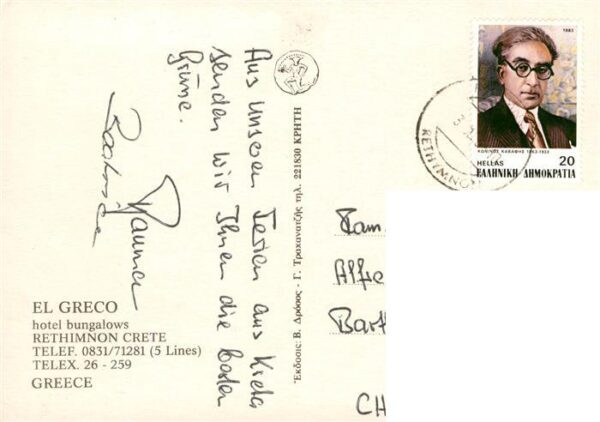 Aus unseren Ferien aus Kreta
senden wir Ihnen die besten
Grüsse.
EL GRECO
hotel bungalows
RETHIMNON CRETE
TELEF. 0831/71281 (5 Lines)
TELEX. 26 - 259
GREECE
Έκδοσις: Β. Δρόσος - Γ. Τραχανατζής τηλ. 221830 ΚΡΗΤΗ
Fam.
Alfre
Barth
CH
1983
ΚΩΝ/ΝΟΣ ΚΑΒΑΦΗΣ 1863-1933
HELLAS 20
ΕΛΛΗΝΙΚΗ ΔΗΜΟΚΡΑΤΙΑ
RETHYMNON